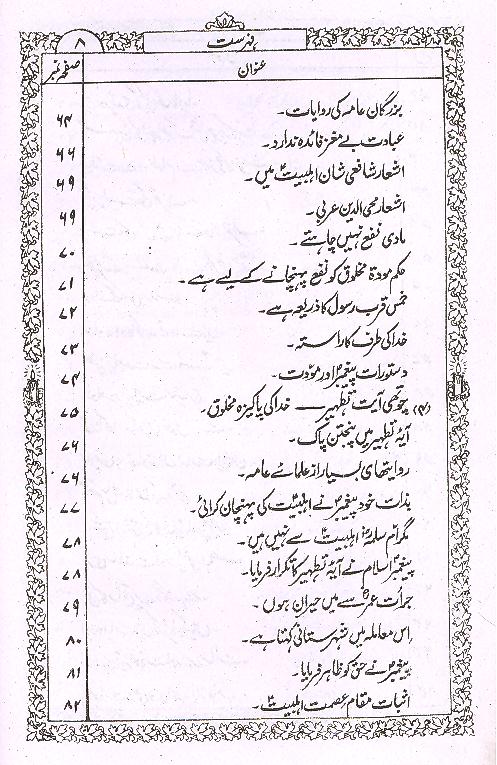 ۸ فہرست
صفحہ نمبر عنوان
بزرگان عامہ کی روایات۔ ۶۴
عبادت بے مغز فائدہ ندارد۔ ۶۶
اشعار شافعی شان اہلبیتؑ میں۔ ۶۹
اشعار محی الدین عربی۔ ۶۹
مادی نفع نہیں چاہتے ۷۰
حکم مودۃ مخلوق کو نفع پہنچانے کے لیے ہے۔ ۷۱
خمس قرب رسول کا ذریعہ ہے۔ ۷۲
خدا کی طرف کا راستہ۔ ۷۳
دستورات پیغمبرؐ اور مودّت۔ ۷۴
(۴) چوتھی آیت تطہیر — خدا کی پاکیزہ مخلوق۔ ۷۵
آیۂ تطہیر میں پنجتن پاک۔ ۷۶
روایتھای بسیار از علمائے عامہ۔ ۷۶
بذات خود پیغمبرؐ نے اہلبیتؑ کی پہنچان کرائی۔ ۷۷
مگر ام سلمہؓ اہلبیتؑ سے نہیں ہیں۔ ۷۸
پیغمبر اسلام نے آیۂ تطہیر کا تکرار فرمایا۔ ۷۸
جرأت عمرؓ سے میں حیران ہوں۔ ۷۹
اس معاملہ میں شہرستانی کہتا ہے۔ ۸۰
پیغمبرؐ نے حق کو ظاہر فرمایا۔ ۸۱
اثبات مقام عصمت اہلبیتؑ۔ ۸۲